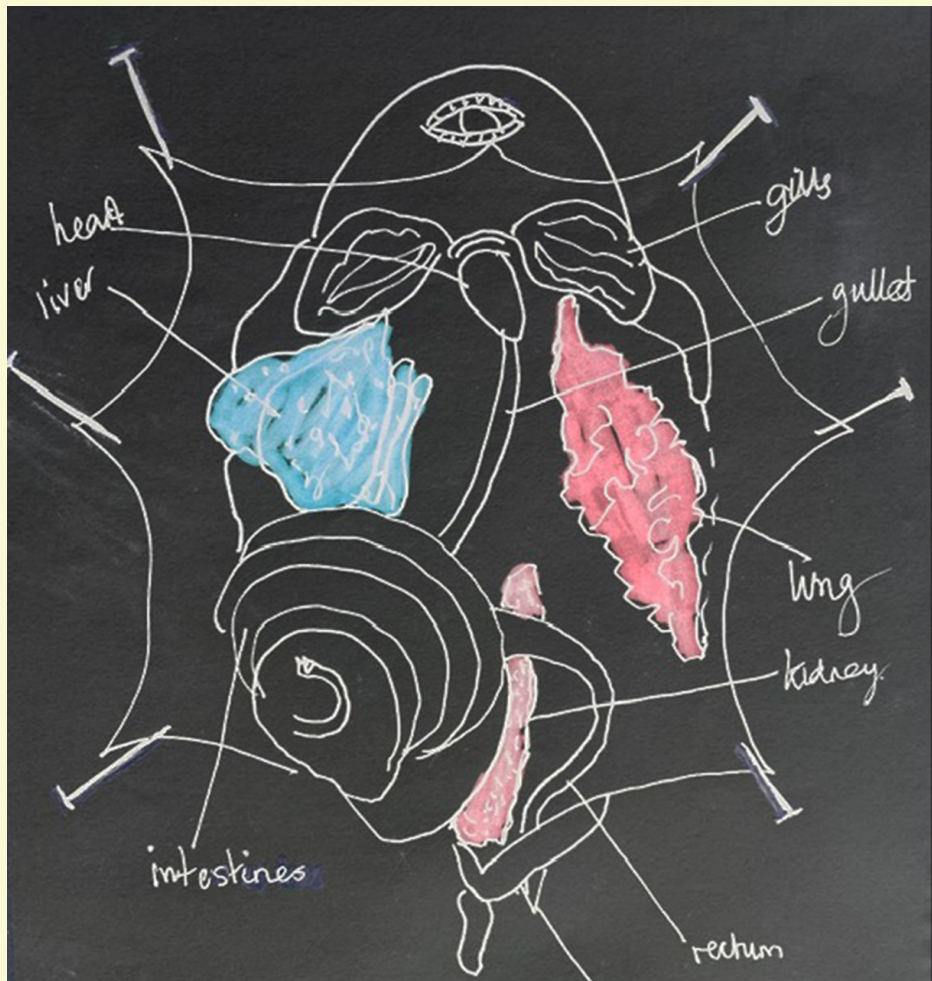 heart
liver
gills
gullet
lung
kidney
intestines
rectum